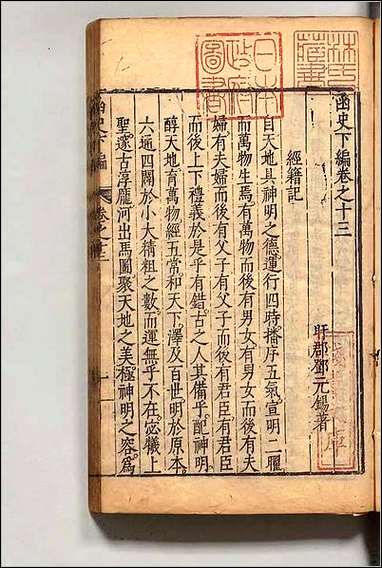 函史下編卷之十三
盱郡鄧元錫著
經籍記
自天地具神明之德運行四時播序五氣宣明二曜
而萬物生焉有萬物而後有男女有男女而後有夫
婦有夫婦而後有父子有父子而後有君臣有君臣
而後上下禮義於是乎有錯古之人其備乎配神明
醇天地育萬物經五常和天下澤及百世明於原本
六通四闢於小大精粗之數而運無乎不在宓犧上
聖邃古淳龐河出馬圖聚天地之美極神明之容爲
函史下編
卷之十三
一
日本
政府
圖書
林氏
藏書